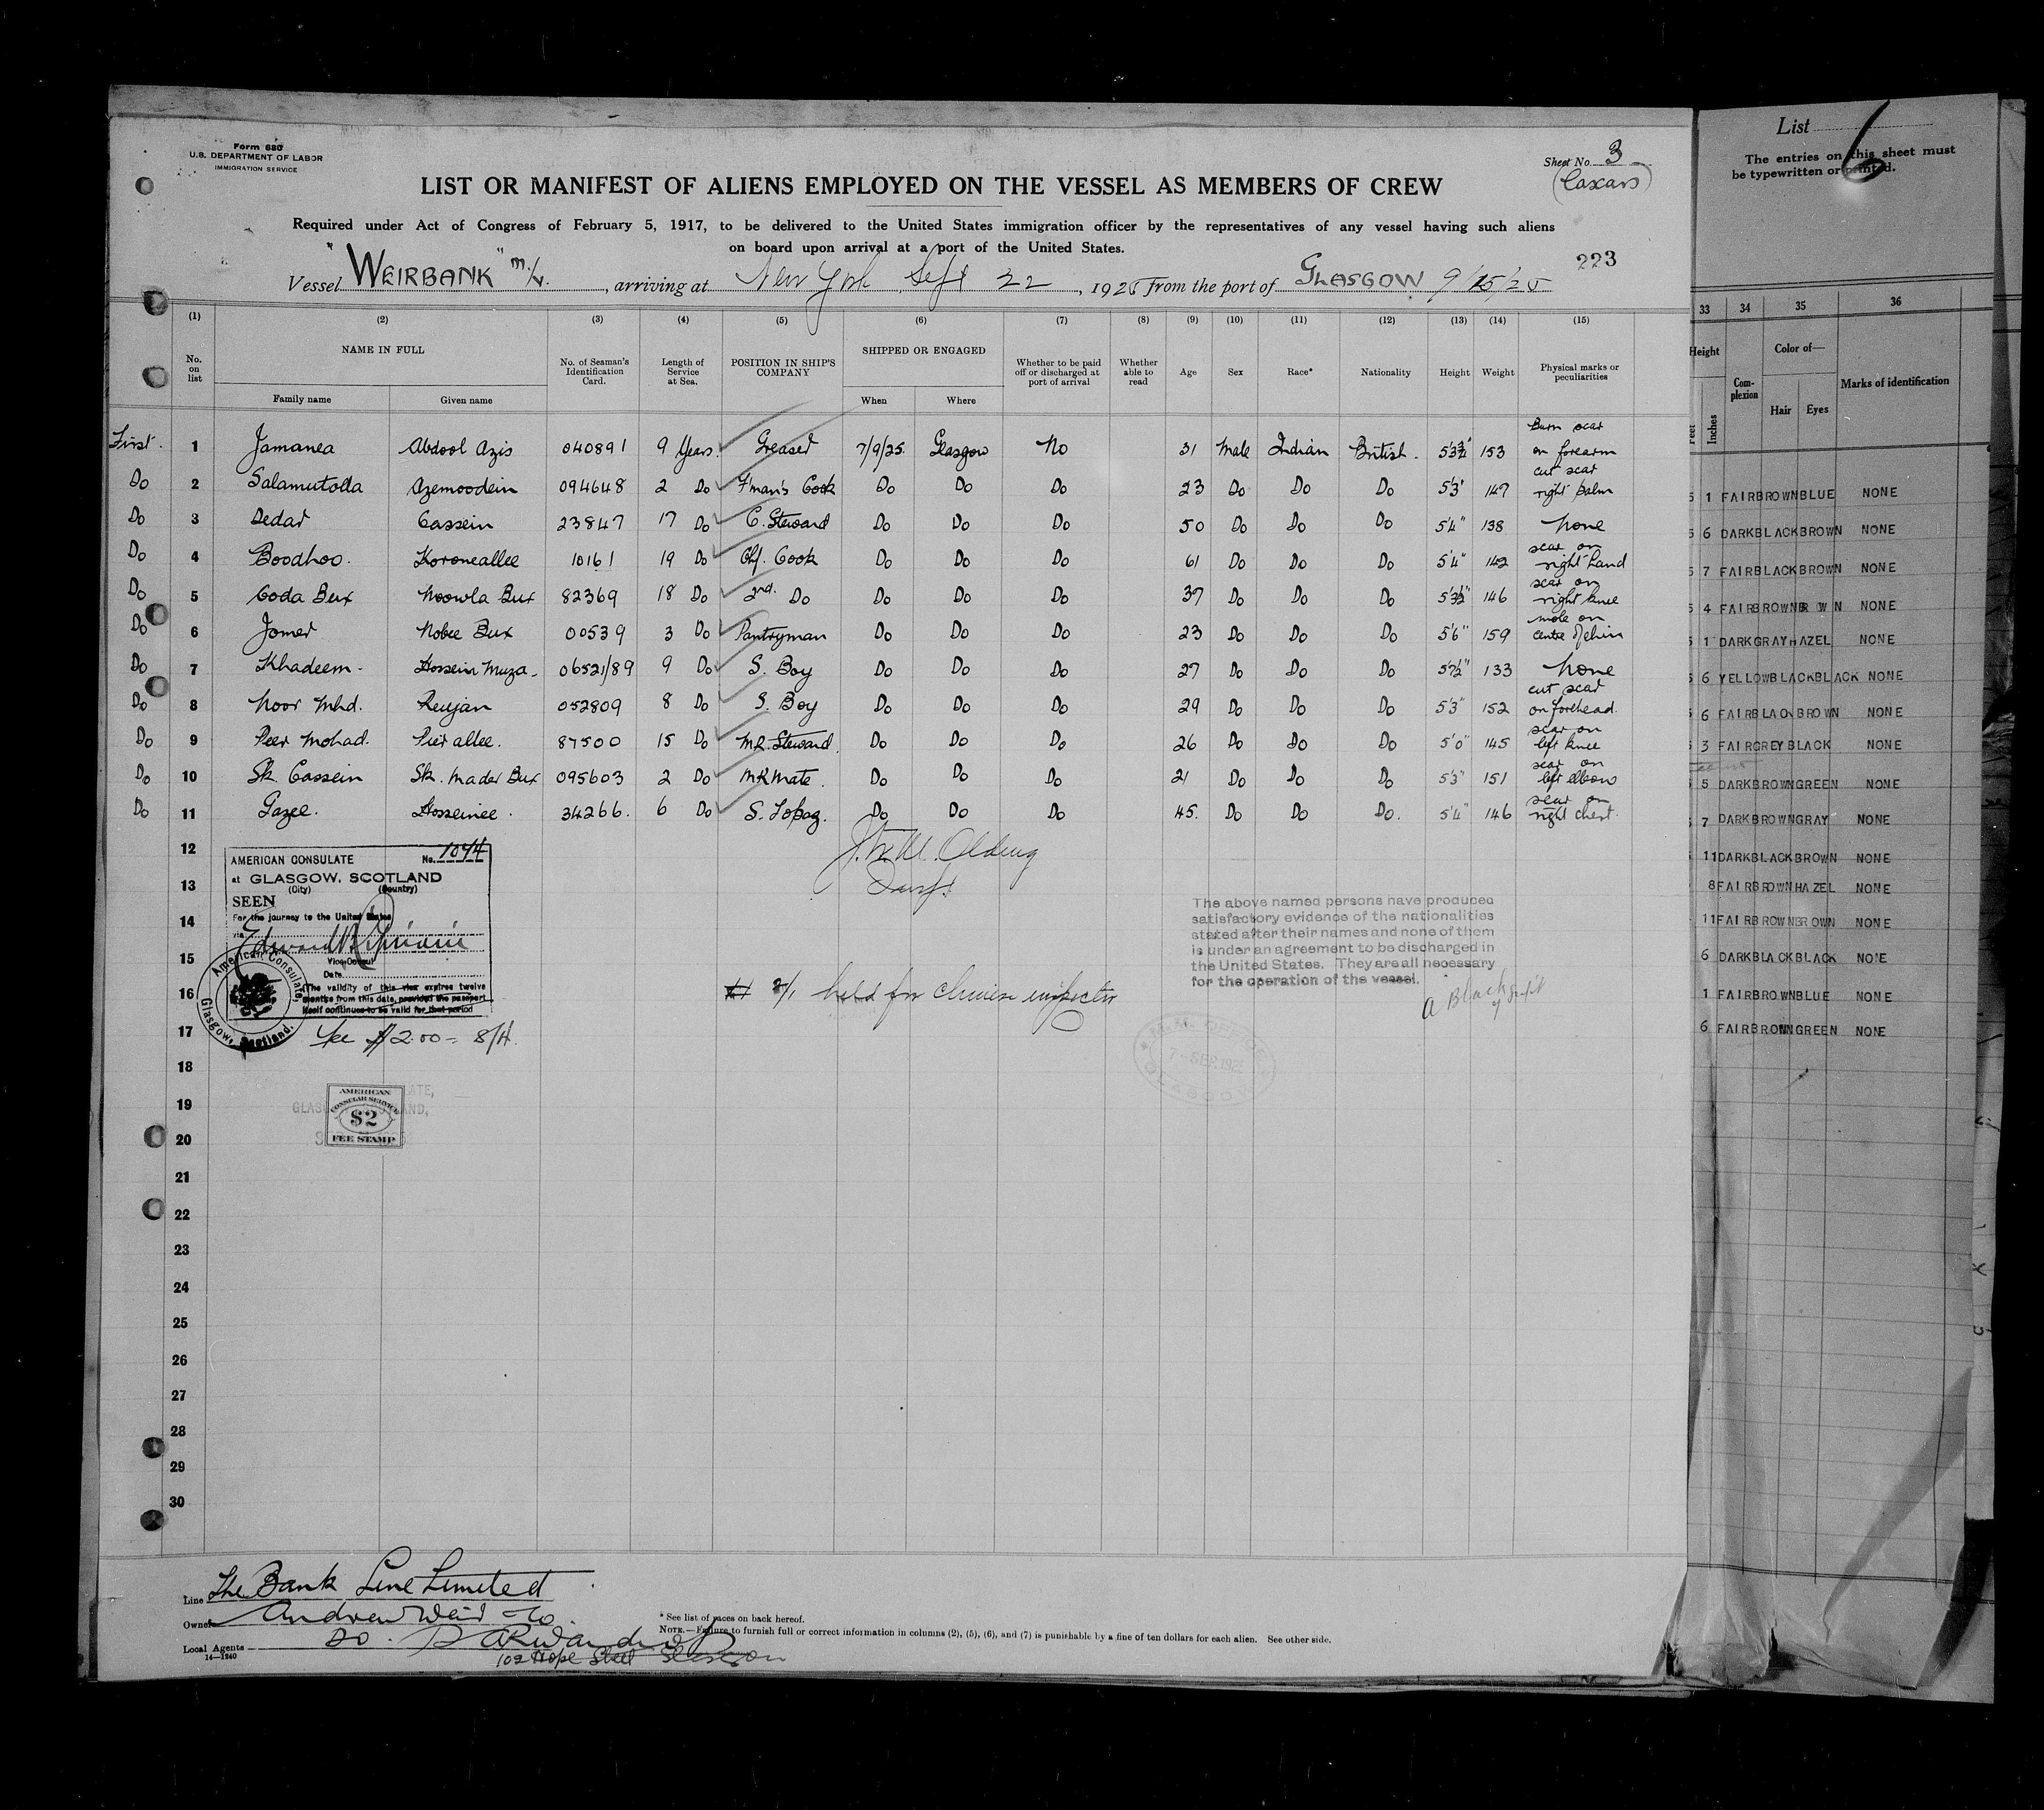 Form 680
U.S. DEPARTMENT OF LABOR
IMMIGRATION SERVICE
Sheet No. 3
(Lascars)
LIST OR MANIFEST OF ALIENS EMPLOYED ON THE VESSEL AS MEMBERS OF CREW
Required under Act of Congress of February 5, 1917, to be delivered to the United States immigration officer by the representatives of any vessel having such aliens
on board upon arrival at a port of the United States.
223
Vessel "WEIRBANK" m/v., arriving at New York Sept 22, 1925 from the port of GLASGOW 9/25/25
(1) (2) (3) (4) (5) (6) (7) (8) (9) (10) (11) (12) (13) (14) (15)
No. on list NAME IN FULL Family name Given name No. of Seaman's Identification Card. Length of Service at Sea. POSITION IN SHIP'S COMPANY SHIPPED OR ENGAGED When Where Whether to be paid off or discharged at port of arrival Whether able to read Age Sex Race* Nationality Height Weight Physical marks or peculiarities
First. 1 Jamanea Abdool Azis 040891 9 Years. Greaser 7/9/25. Glasgow No 31 Male Indian British. 5'3½" 153 Burn scar on forearm
Do 2 Salamutolla Azemoodein 094648 2 Do F'man's Cook Do Do Do 23 Do Do Do 5'3" 147 cut scar right palm
Do 3 Dedar Cassein 23847 17 Do C. Steward Do Do Do 50 Do Do Do 5'4" 138 None
Do 4 Boodhoo. Koroneallee 10161 19 Do Chf. Cook Do Do Do 61 Do Do Do 5'4" 142 scar on right hand
Do 5 Goda Bux Moowla Bux 82369 18 Do 2nd. Do Do Do Do 37 Do Do Do 5'3½" 146 scar on right knee
Do 6 Jomer Nobee Bux 00539 3 Do Pantryman Do Do Do 23 Do Do Do 5'6" 159 mole on centre of chin
Do 7 Khadeem - Hossein Muza - 06521/89 9 Do S. Boy Do Do Do 27 Do Do Do 133 None
Do 8 Noor Mhd. Reujan 052809 8 Do S. Boy Do Do Do 29 Do Do Do 5'3" 152 cut scar on forehead.
Do 9 Peer Mohad. Pier allee. 87500 15 Do MR. Steward. Do Do Do 26 Do Do Do 5'0" 145 scar on left knee
Do 10 Sk. Cassein Sk. Mader Bux 095603 2 Do MR Mate. Do Do Do 21 Do Do Do 5'3" 151 scar on left elbow
Do 11 Gazee. Hosseinee. 34266. 6 Do S. Topaz. Do Do Do 45. Do Do Do. 5'4" 146 scar on right chest.
12
13
14
15
16
17
18
19
20
21
22
23
24
25
26
27
28
29
30
AMERICAN CONSULATE No. 1074
at GLASGOW, SCOTLAND
(City) (Country)
SEEN
For the journey to the United States
via
Edward
Vice-Consul
Date
(The validity of this visa expires twelve
months from this date, provided the passport
itself continues to be valid for that period
American Consulate Glasgow, Scotland.
Fee $2.00 = 8/4.
AMERICAN
CONSULAR SERVICE
$2
FEE STAMP
The above named persons have produced
satisfactory evidence of the nationalities
stated after their names and none of them
is under an agreement to be discharged in
the United States. They are all necessary
for the operation of the vessel.
held for Chinese inspector
7-SEP.1925
Line The Bank Line Limited
Owner Andrew Weir & Co.
Local Agents Do.
102 Hope Street Glasgow
14—1240
* See list of races on back hereof.
NOTE.—Failure to furnish full or correct information in columns (2), (5), (6), and (7) is punishable by a fine of ten dollars for each alien. See other side.
List 6
The entries on this sheet must
be typewritten or printed.
33 34 35 36
Height Inches Complexion Color of— Hair Eyes Marks of identification
1 FAIR BROWN BLUE NONE
6 DARK BLACK BROWN NONE
7 FAIR BLACK BROWN NONE
4 FAIR BROWN BR W N NONE
1 DARK GRAY HAZEL NONE
6 YELLOW BLACK BLACK NONE
6 FAIR BLACK BROWN NONE
3 FAIR GREY BLACK NONE
5 DARK BROWN GREEN NONE
7 DARK BROWN GRAY NONE
11 DARK BLACK BROWN NONE
8 FAIR BROWN HAZEL NONE
11 FAIR BROWN BROWN NONE
6 DARK BLACK BLACK NONE
1 FAIR BROWN BLUE NONE
6 FAIR BROWN GREEN NONE